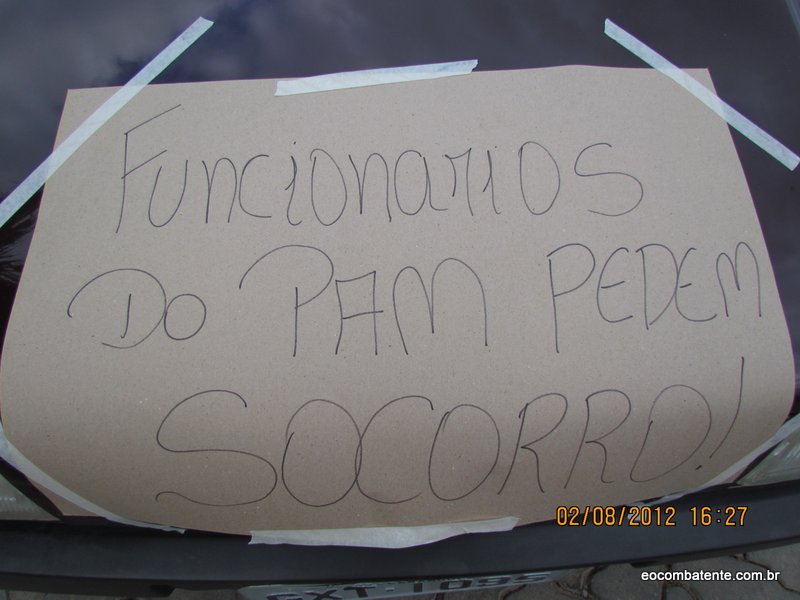 FUNCIONARIOS
DO PAM PEDEM
SOCORRO!
02/08/2012 16:27
eocombatente.com.br